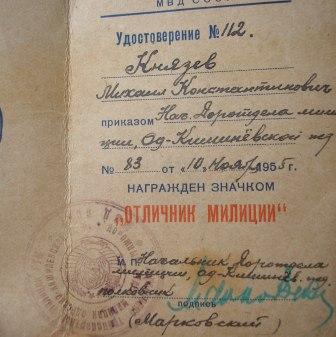 МВД СССР
Удостоверение № 112.
Князев
Михаил Константинович
приказом Нач. Доротдела мили-
ции, Од-Кишинёвской жд
№ 83 от „10" Ноября 1955г.
НАГРАЖДЕН ЗНАЧКОМ
"ОТЛИЧНИК МИЛИЦИИ"
М.П. Начальник Доротдела
милиции, Од-Кишинев. жд.
полковник
подпись
(Марковский)